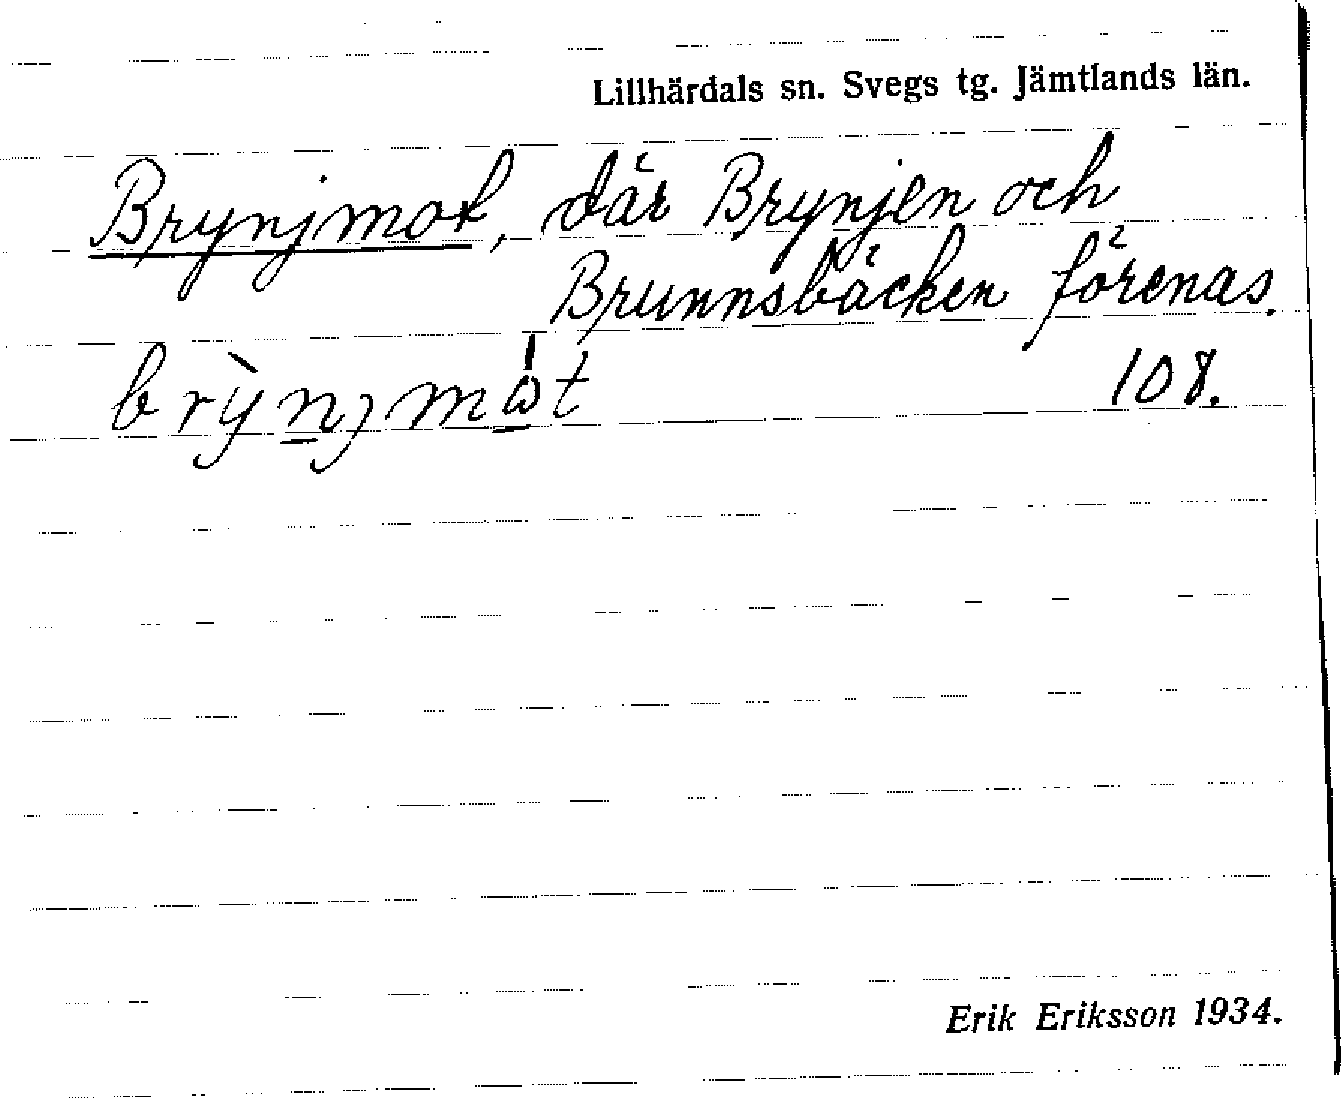 Lillhärdals sn. Svegs tg. Jämtlands län.
Brynjmot, där Brynjen och
Brunnsbäcken förenas.
brỳn̲jmώ̲t 108.
Erik Eriksson 1934.